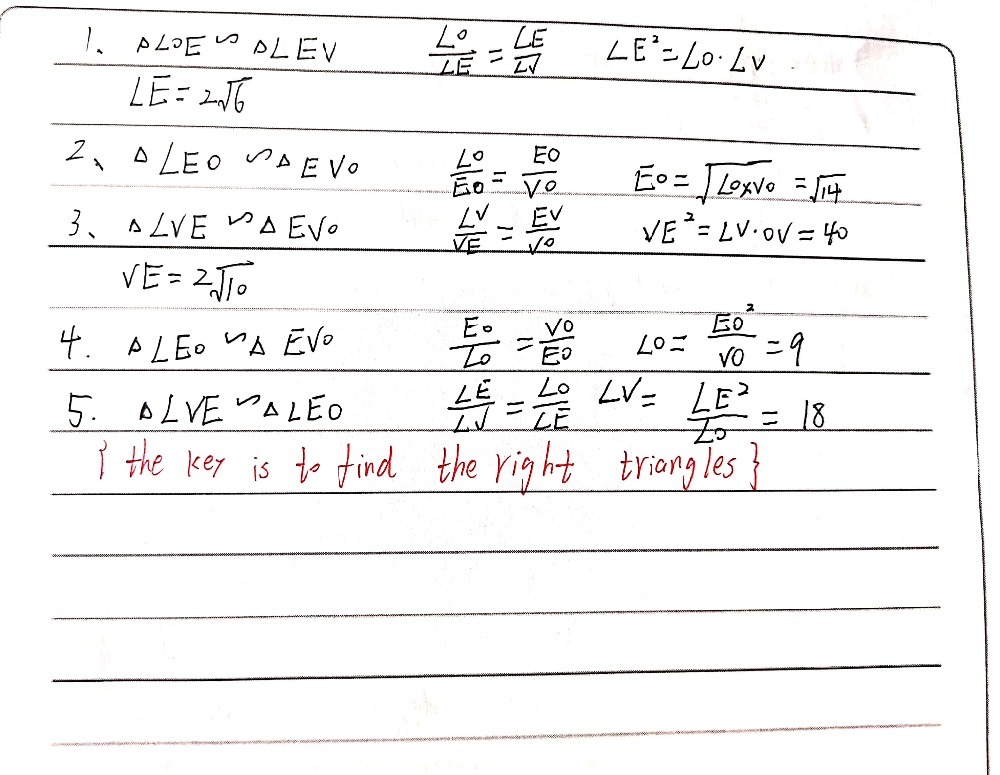 1. △LOE ∽ △LEV LO/LE = LE/LV LE²=LO·LV.
LE=2√6
2、△LEO ∽△EVO LO/EO = EO/VO EO=√LO×VO =√14
3、△LVE ∽△EVO LV/VE = EV/VO VE²=LV·OV=40
VE=2√10
4. △LEO ∽△ EVO EO/LO = VO/EO LO= EO²/VO =9
5. △LVE ∽△LEO LE/LV = LO/LE LV= LE²/LO = 18
{ the key is to find the right triangles }